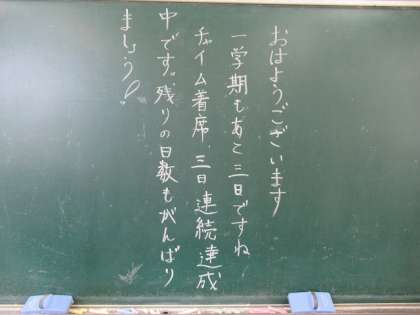 おはようございます
一学期もあと三日ですね
チャイム着席 三日連続達成
中です。残りの日数もがんばり
ましょう!